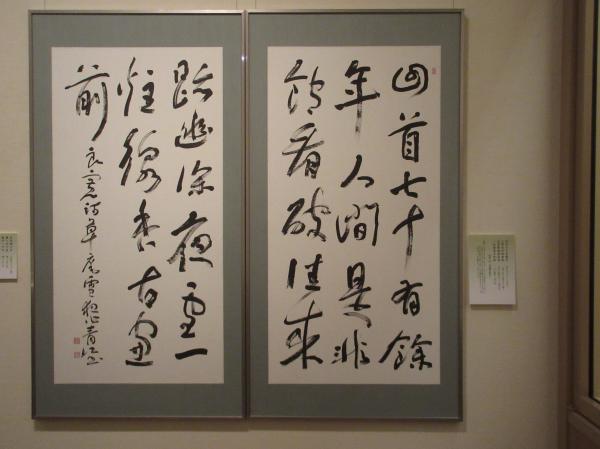 回首七十有餘
年人間是非
飽看破往来
跡幽深夜雪一
炷線香古窓
前
良寛詩草庵雪夜作